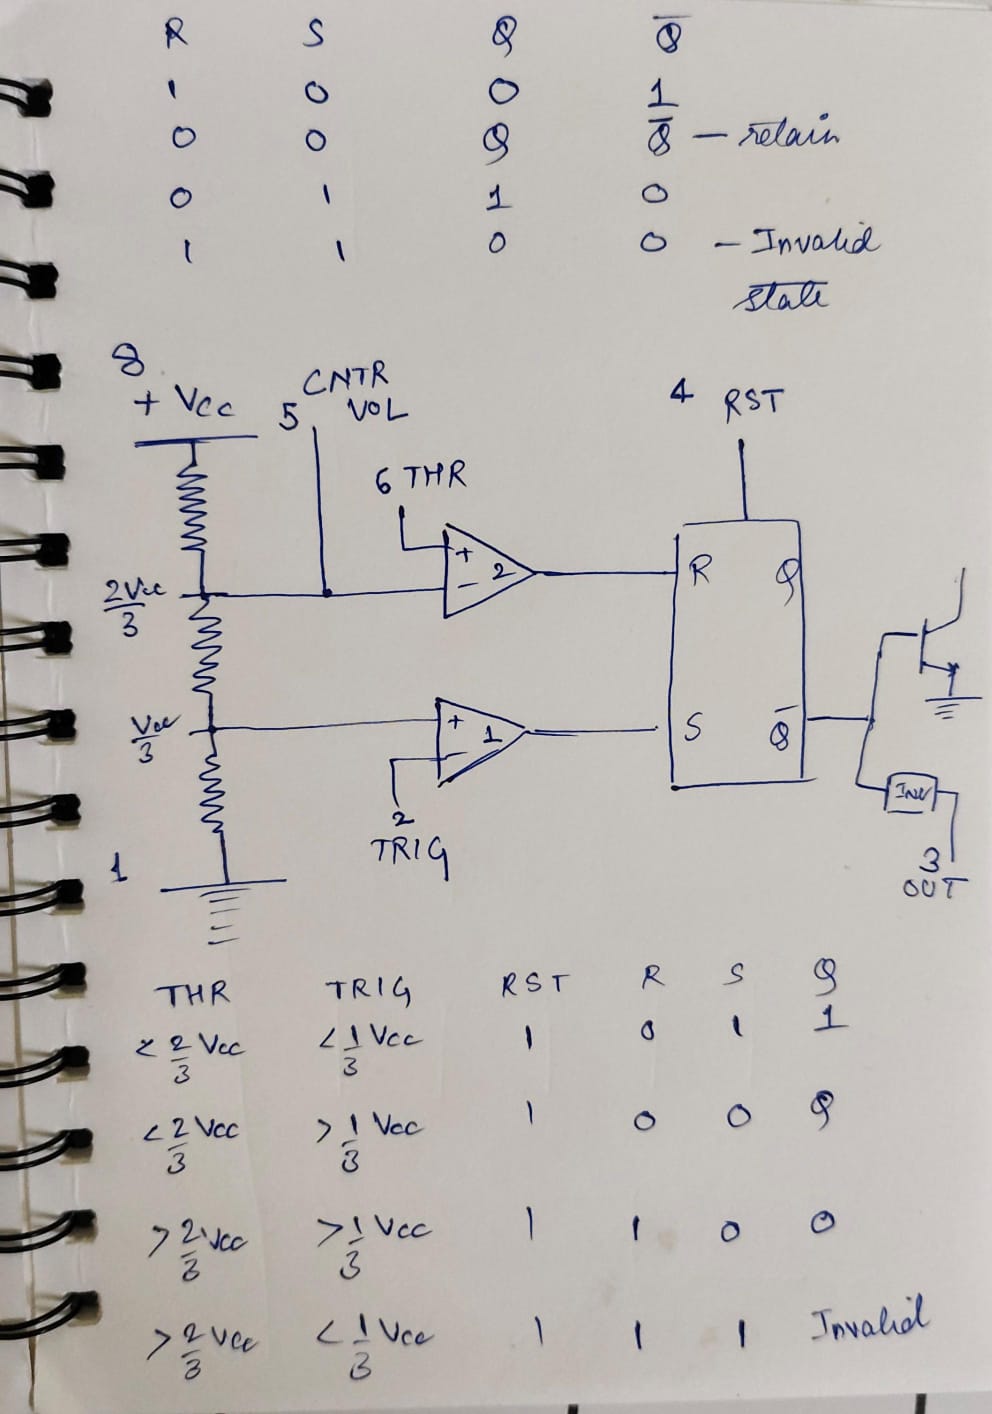 R S Q Q̅
1 0 0 1
0 0 Q Q̅ - retain
0 1 1 0
1 1 0 0 - Invalid
state
8
+ Vcc
5 CNTR
VOL
4 RST
6 THR
2Vcc/3
+
- 2
R Q
Vcc/3
+
- 1
S Q̅
INV
2
TRIG
1
3
OUT
THR TRIG RST R S Q
< 2/3 Vcc < 1/3 Vcc 1 0 1 1
< 2/3 Vcc > 1/3 Vcc 1 0 0 Q
> 2/3 Vcc > 1/3 Vcc 1 1 0 0
> 2/3 Vcc < 1/3 Vcc 1 1 1 Invalid